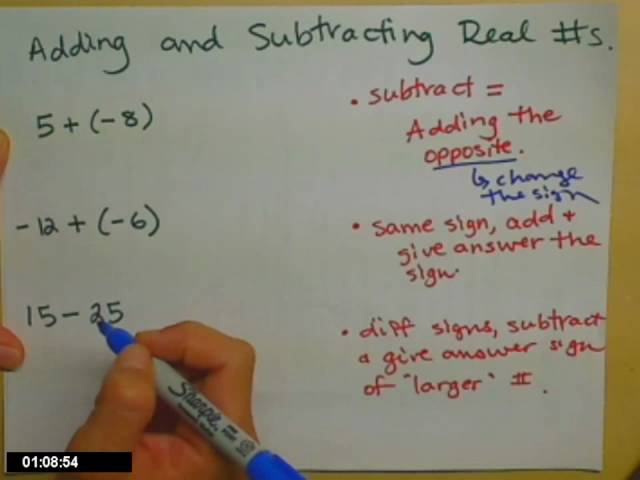 Adding and Subtracting Real #s.
5 + (-8)
-12 + (-6)
15 - 25
• subtract =
Adding the
opposite.
↳ change
the sign
• same sign, add +
give answer the
sign.
• diff signs, subtract
a give answer sign
of "larger" #.
Sharpie
01:08:54